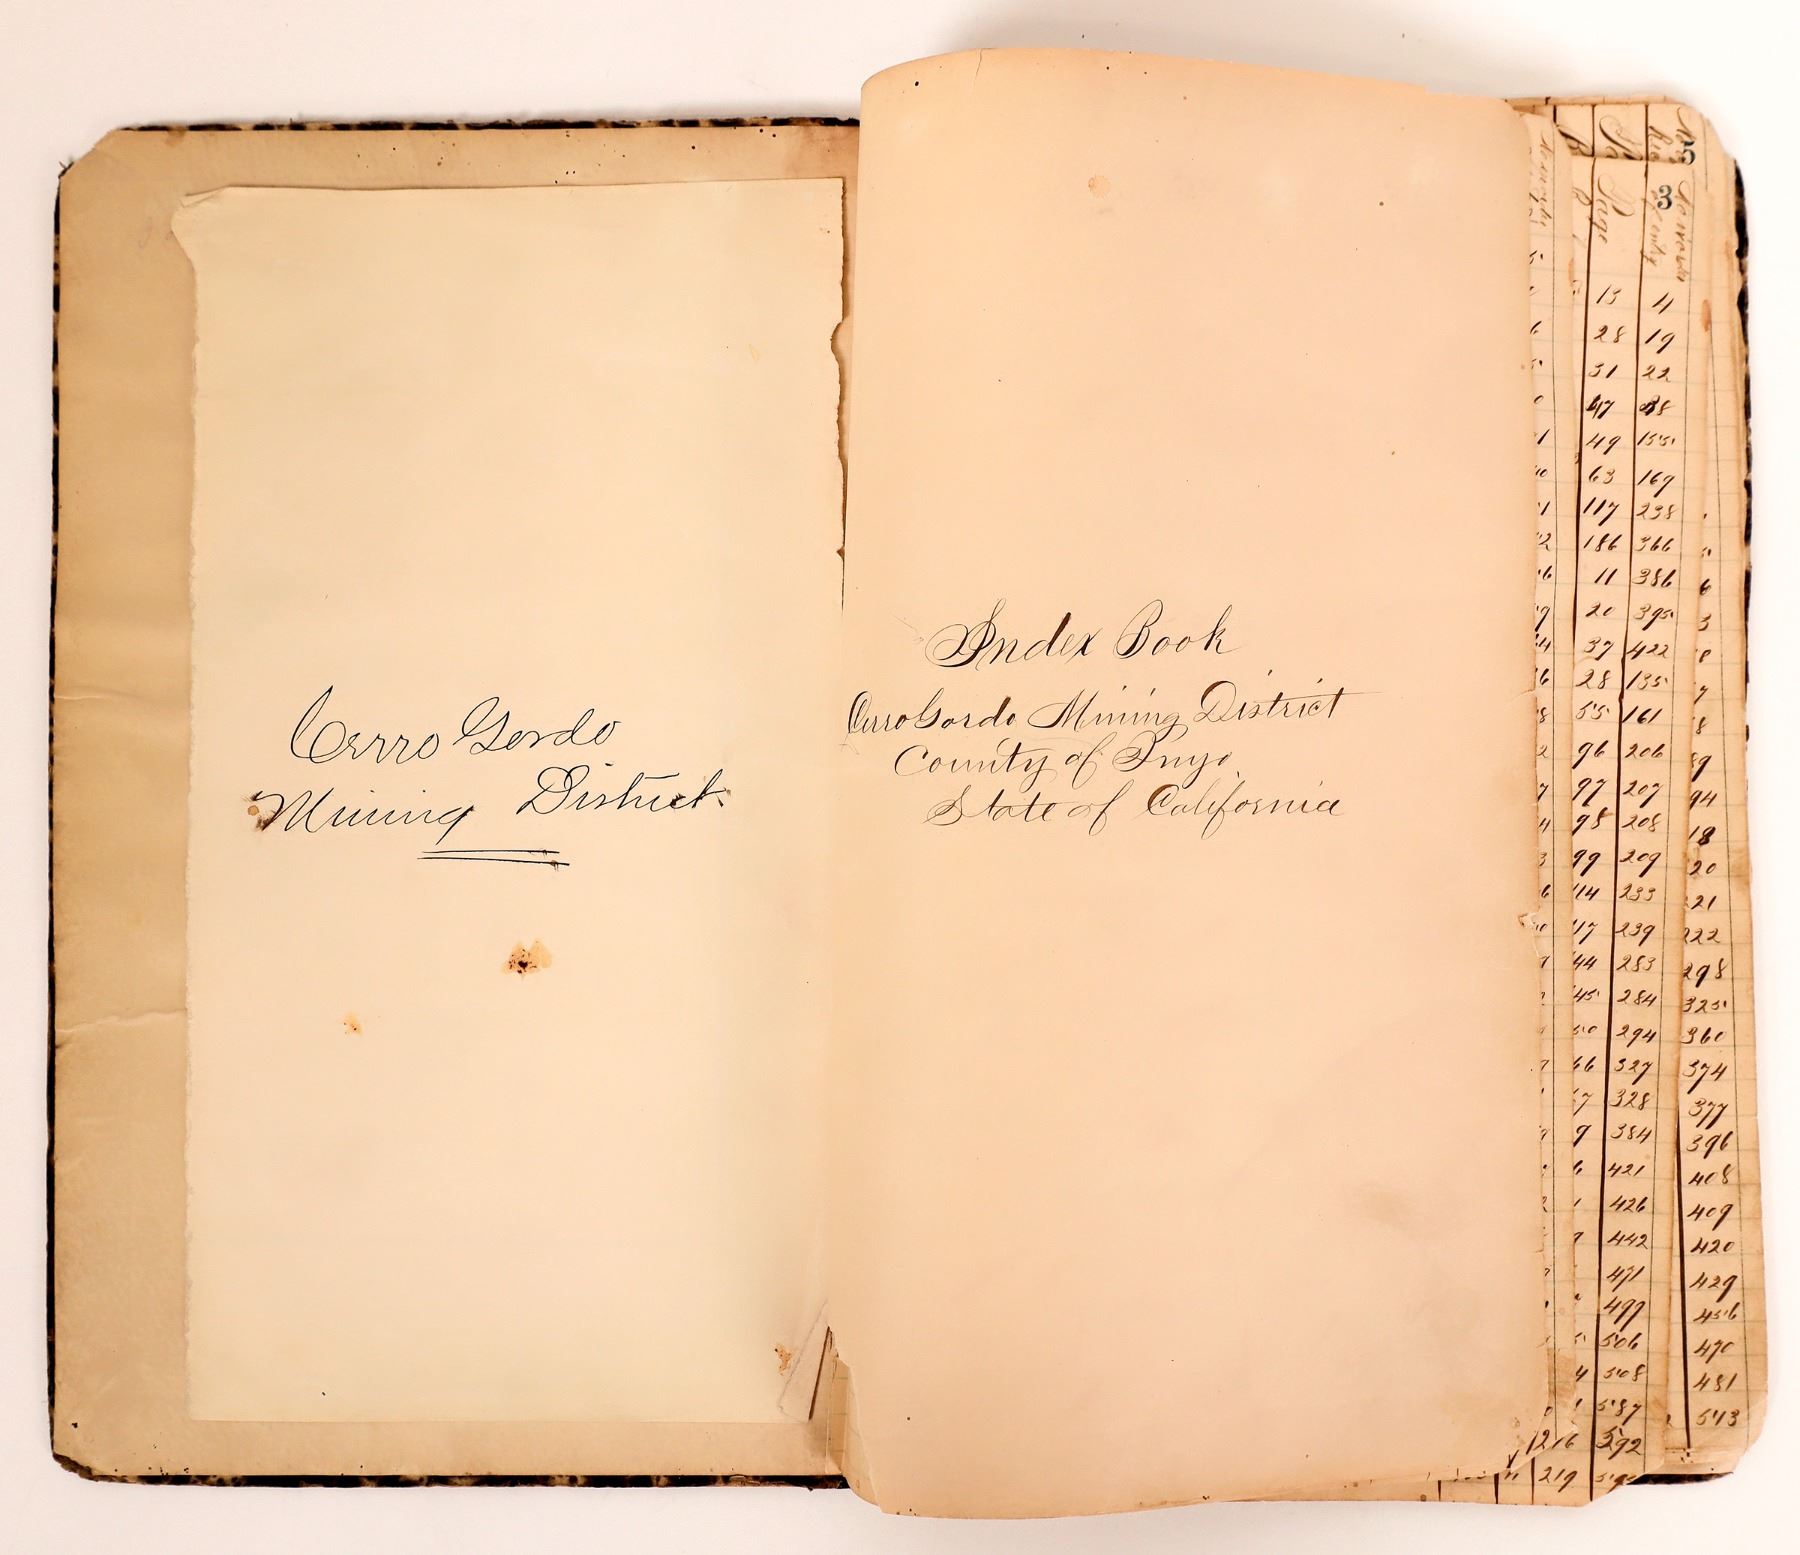 Cerro Gordo
Mining District.
Index Book
Cerro Gordo Mining District
County of Inyo
State of California
5
3
Page
13 4
28 19
31 22
47 38
49 155
63 169
117 238
186 366
11 386 6
20 395 3
37 422 8
28 135 7
55 161 8
96 206 89
97 207 94
98 208 18
99 209 20
114 233 21
117 239 222
44 283 298
45 284 325
50 294 360
66 327 374
7 328 377
9 384 396
6 421 408
1 426 409
442 420
471 429
499 456
506 470
4 508 481
587 543
216 592
219